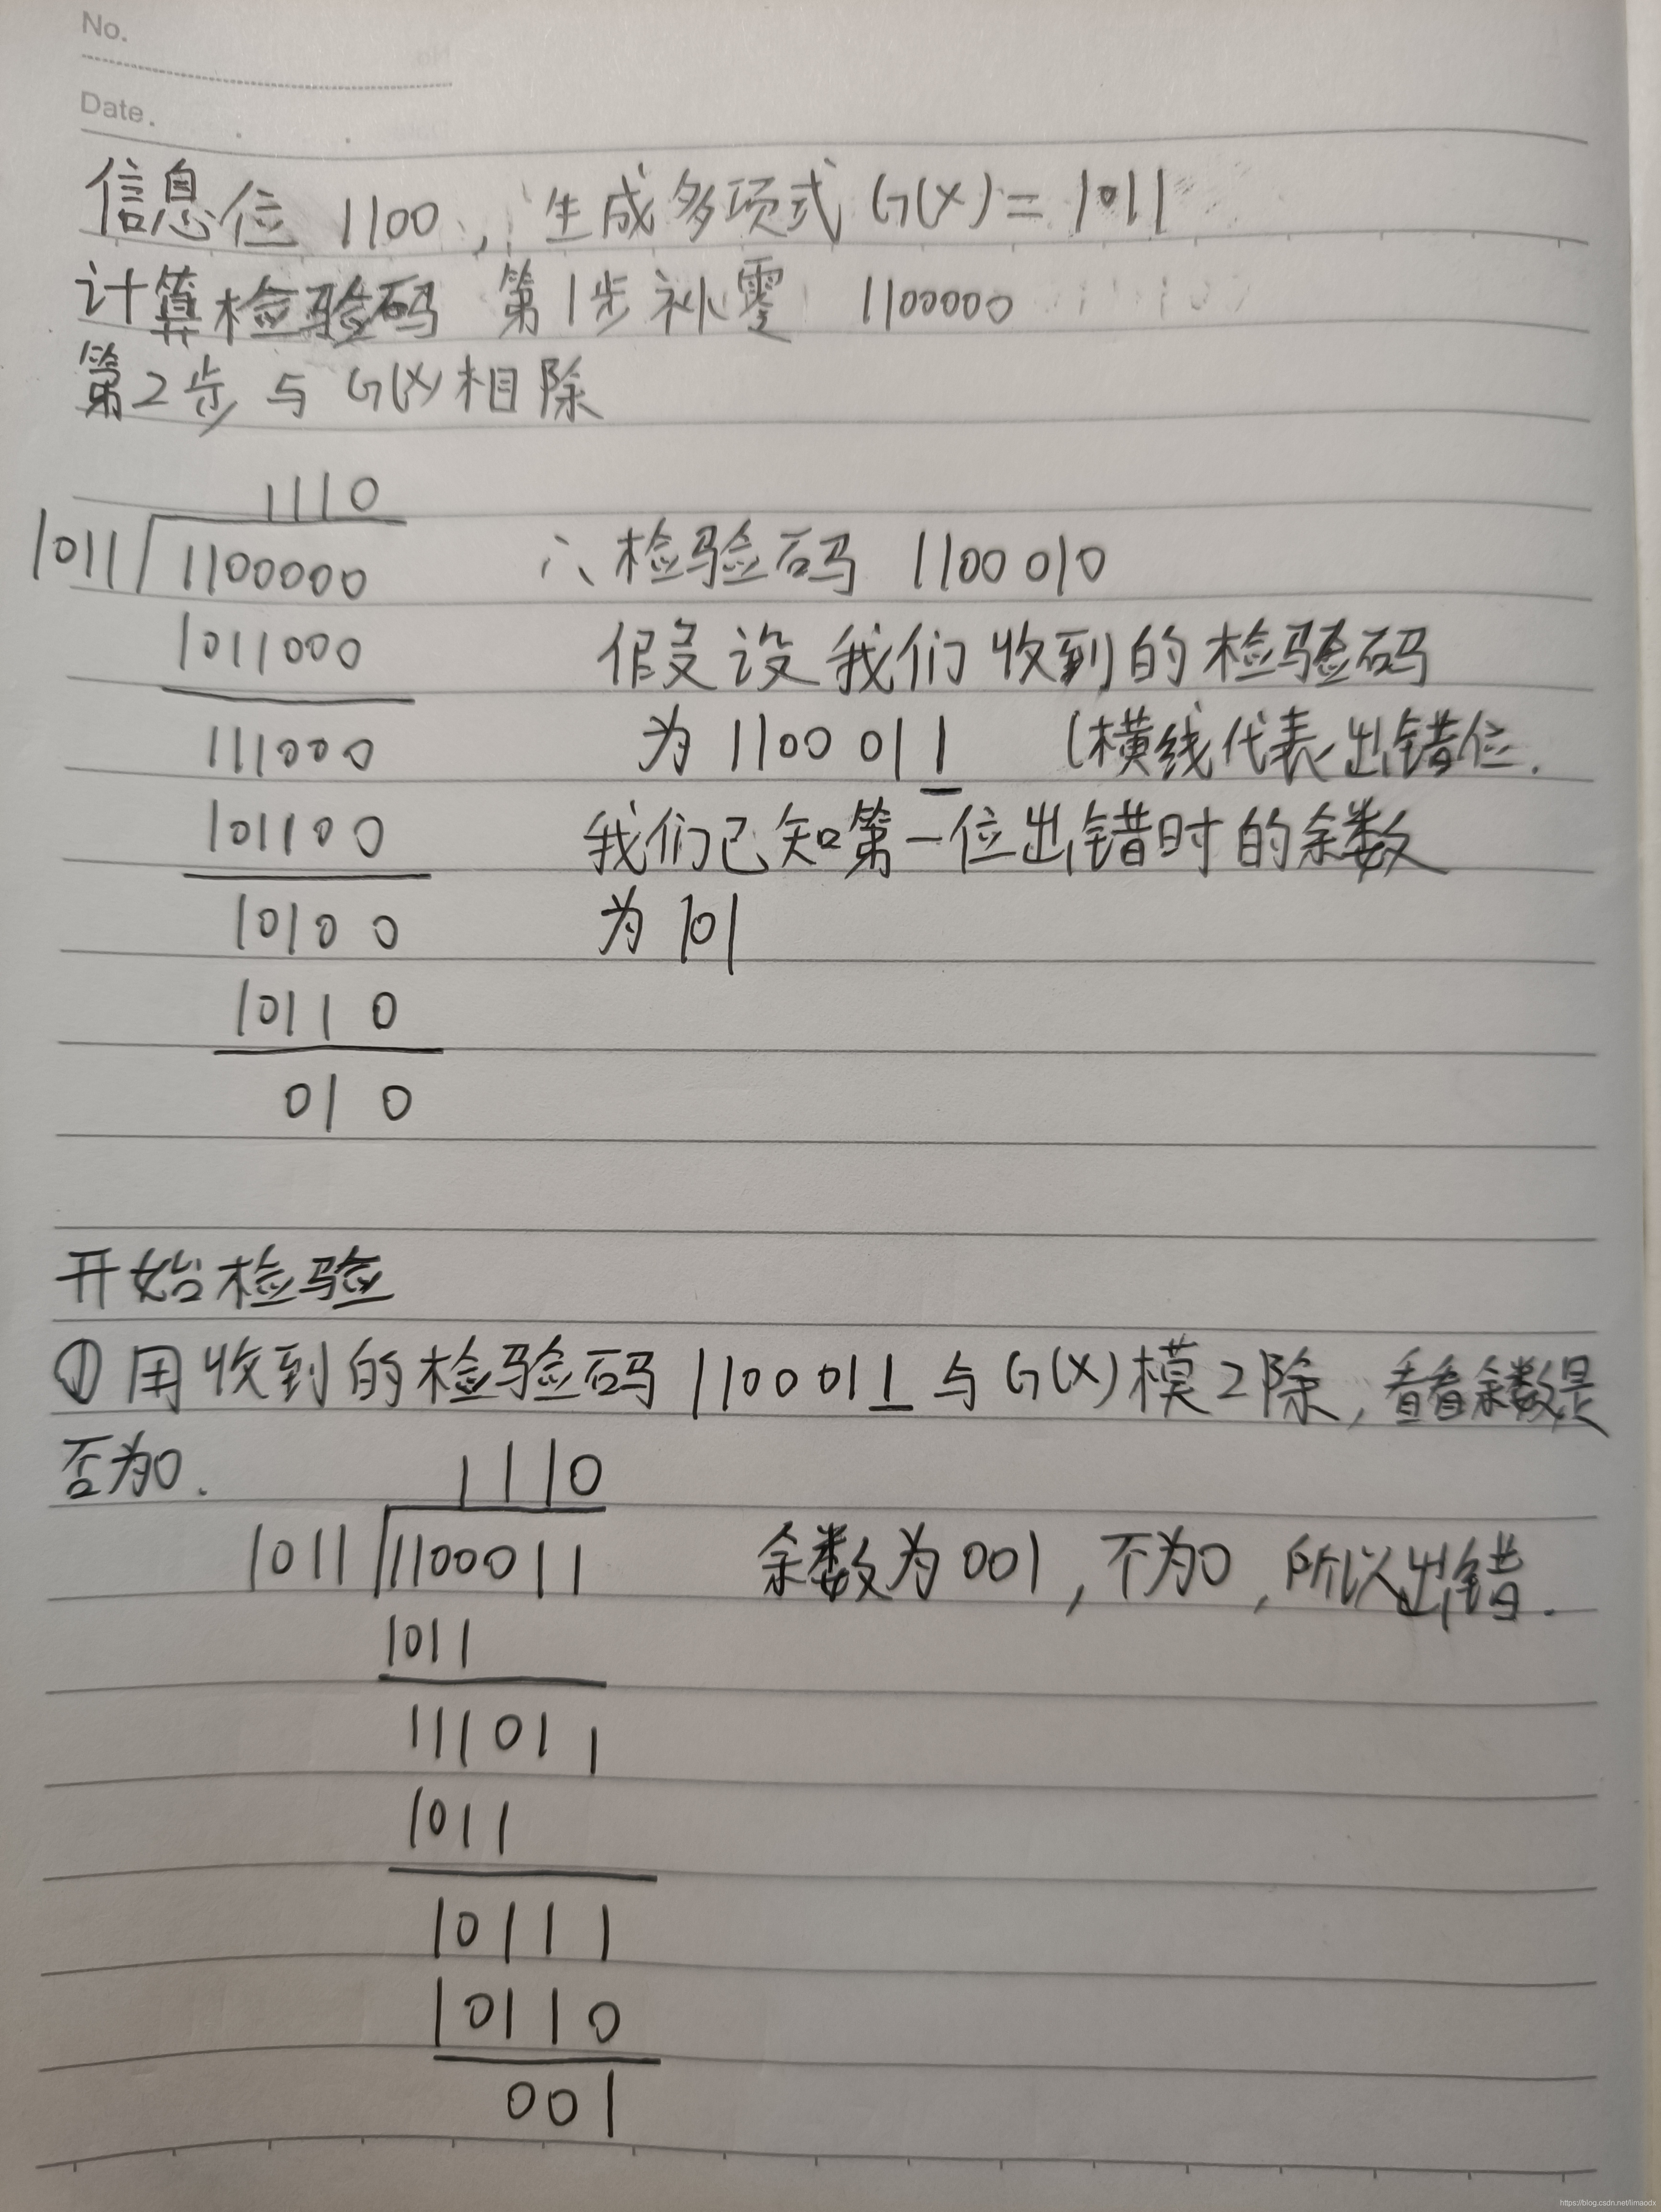 No.
Date.
信息位 1100，生成多项式 G(X)= 1011
计算检验码 第1步补零 1100000
第2步 与 G(X)相除
1110
1011 1100000 ∴检验码 1100 010
1011000 假设我们收到的检验码
111000 为 1100 011 (横线代表出错位.
101100 我们已知第一位出错时的余数
10100 为 101
10110
010
开始检验
① 用收到的检验码 1100 011 与 G(X)模2除，看看余数是
否为0.
1110
1011 1100011 余数为 001，不为0，所以出错.
1011
111011
1011
10111
10110
001
https://blog.csdn.net/limaodx